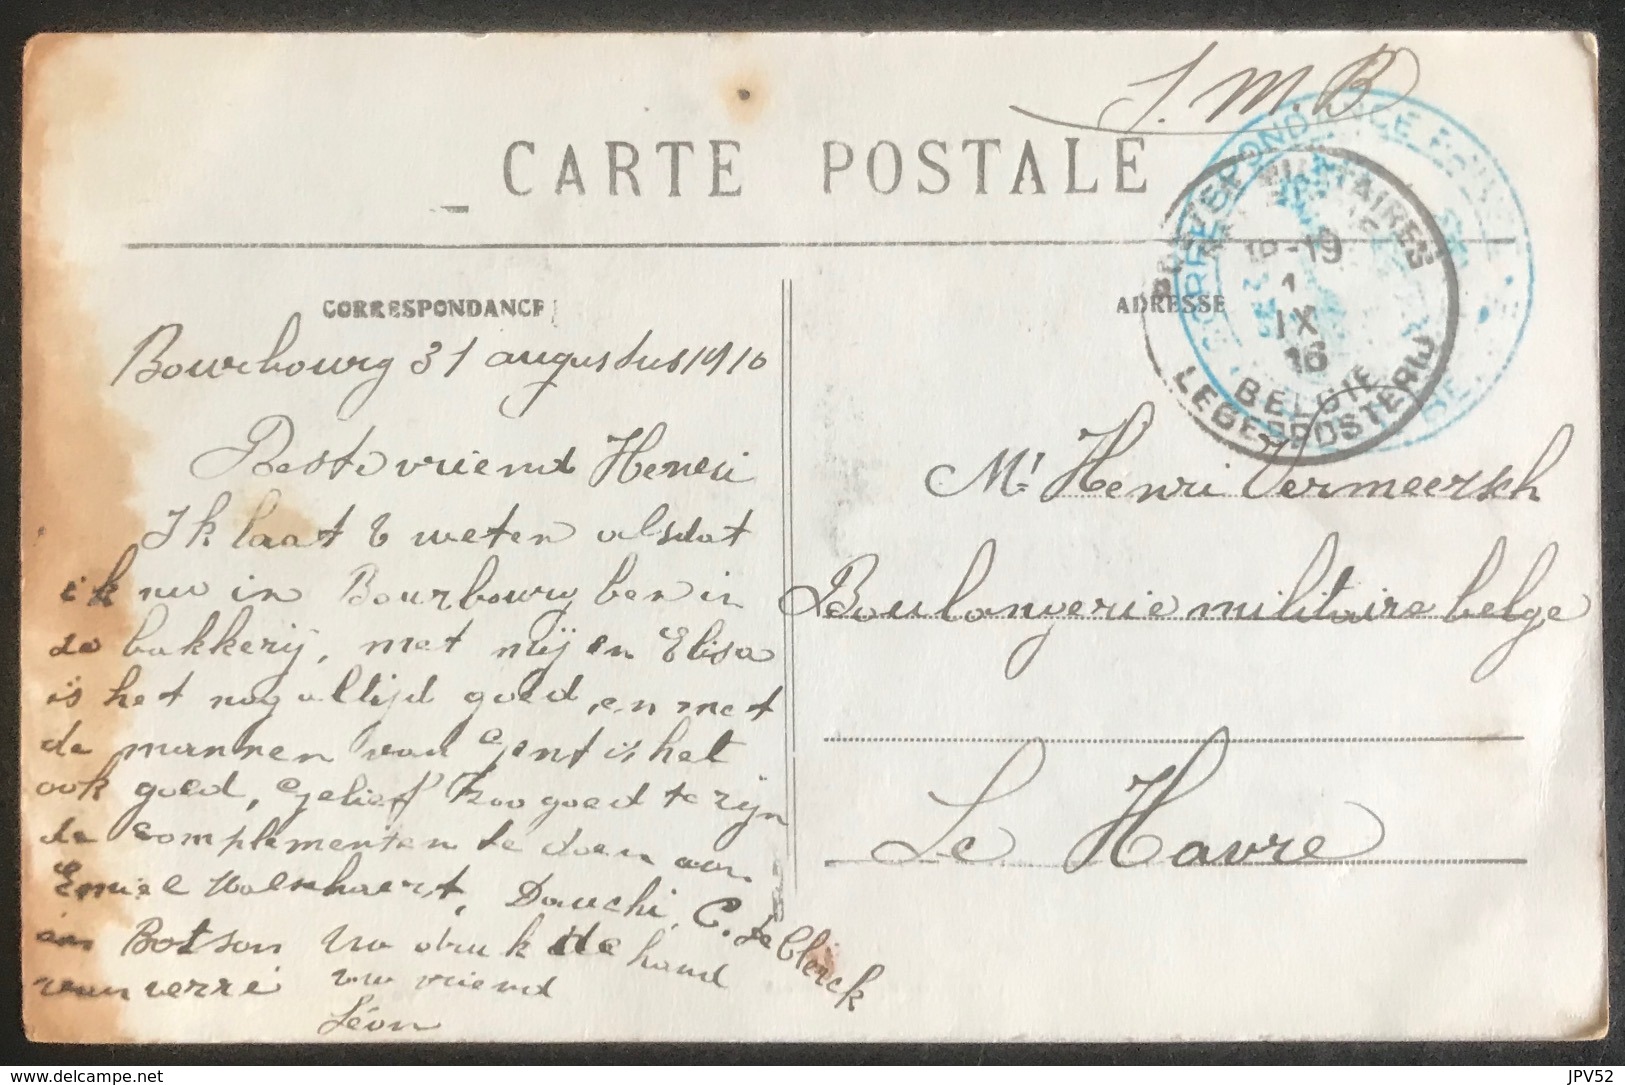 S.M.B
CARTE POSTALE
CORRESPONDANCE
ADRESSE
POSTES MILITAIRES
18-19
1
IX
16
BELGIE
LEGERPOSTERIJ
Bourbourg 31 augustus 1916
Beste vriend Henri
Ik laat U weten alsdat
ik nu in Bourbourg ben in
de bakkerij, met mij en Elisa
is het nog altijd goed, en met
de mannen van Gent is het
ook goed, Gelieft zoo goed te zijn
de complementen te doen aan
Emiel, Dauchi, C. De Clerck
en Botson Uw druk de hand
van verre uw vriend
Léon
Mr Henri Vermeersch
Boulangerie militaire belge
Le Havre
delcampe.net
JPV52